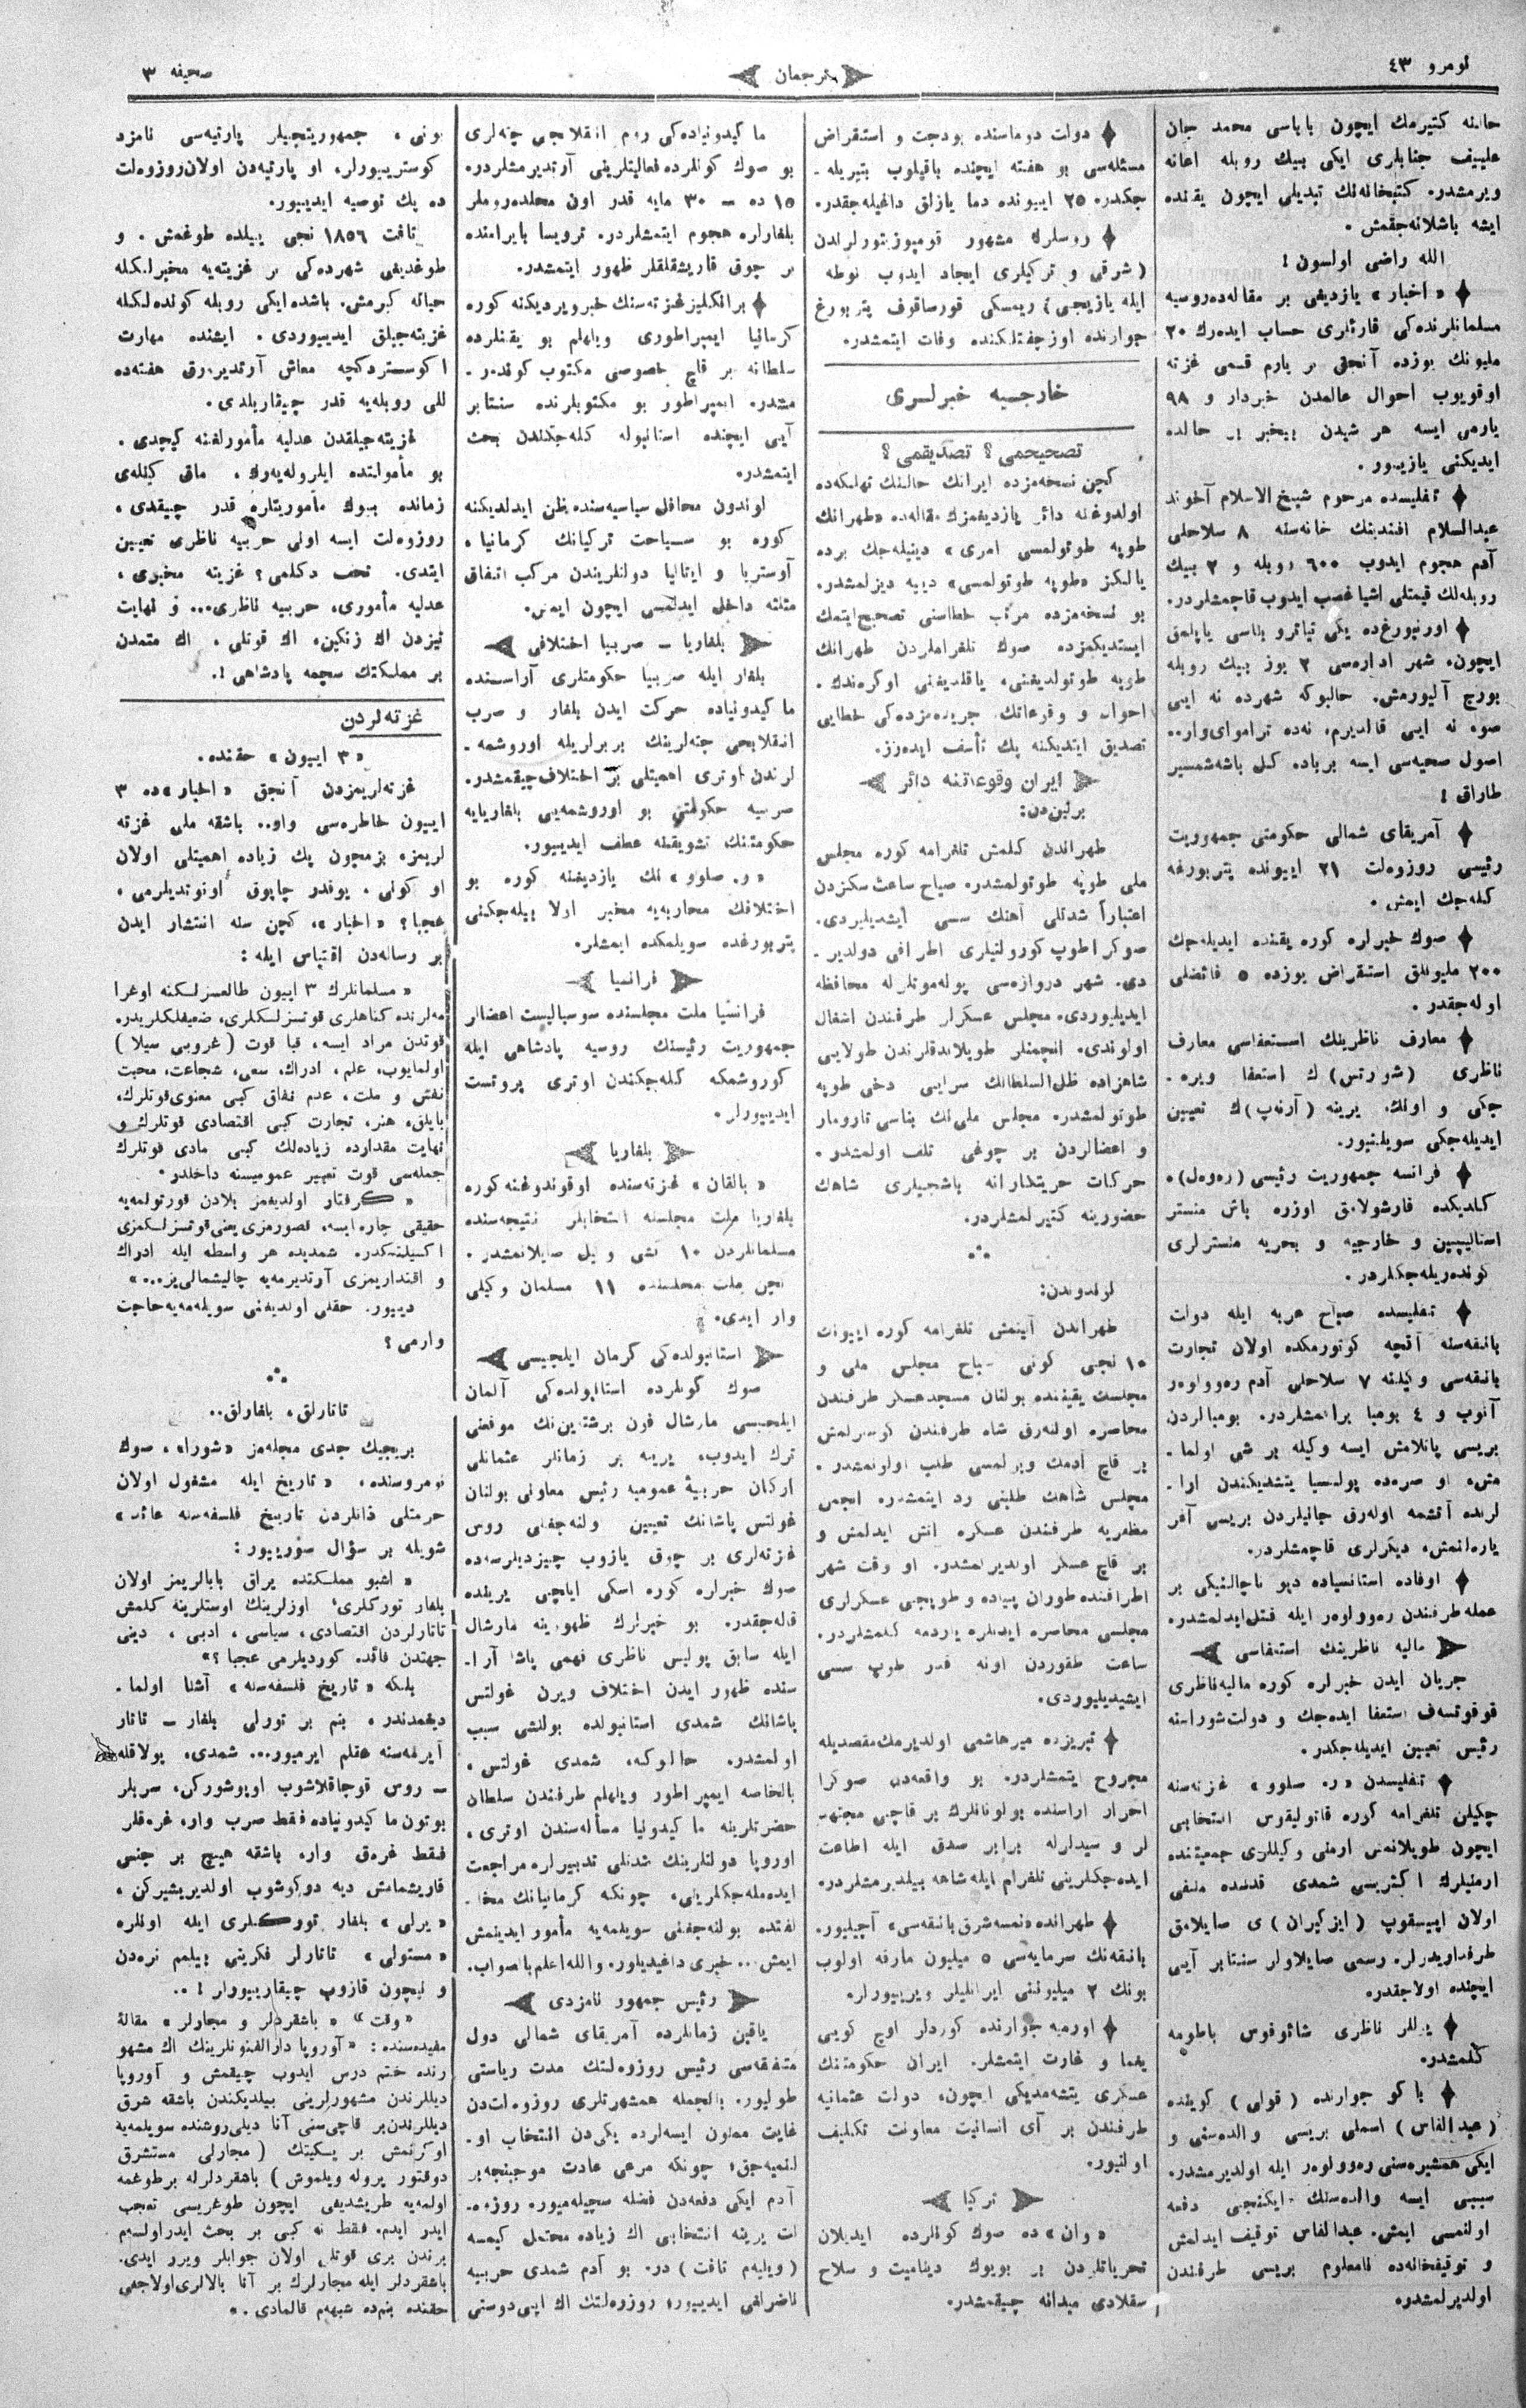 نومرو ٤٣
ترجمان
صحيفه ٣
حالنه كتيرمك ايچون باباسى محمد جان
علييف جنابلرى ايكى بيك روبله اعانه
ويرمشدر. كتبخانه‌نك تبديلى ايچون يقنده
ايشه باشلانه‌جقمش.
الله راضى اولسون!
« اخبار » يازديغى بر مقاله‌ده روسيه
مسلمانلرنده‌كى قارئلرى حساب ايده‌رك ٢٠
مليونك يوزده آنجق بر يارم قسمى غزته
اوقويوب احوال عالمدن خبردار و ٩٨
يارمى ايسه هر شيدن بيخبر بر حالده
ايديكنى يازييور.
تفليسده مرحوم شيخ الاسلام آخوند
عبدالسلام افندينك خانه‌سنه ٨ سلاحلى
آدم هجوم ايدوب ٦٠٠ روبله و ٢ بيك
روبله‌لك قيمتلى اشيا غصب ايدوب قاچمشلردر.
اورنبورغ‌ده يكى تياترو بناسى ياپلمق
ايچون، شهر اداره‌سى ٢ يوز بيك روبله
بورج آليورمش. حالبوكه شهرده نه ايى
صو، نه ايى قالديرم، نه‌ده تراموای وار..
اصول صحيه‌سى ايسه برباد، كل باشه شمشير
طاراق!
آمريقاى شمالى حكومتى جمهوريت
رئيسى روزوه‌لت ٢١ اييونده پتربورغه
كله‌جك ايمش.
صوك خبرلره كوره يقنده ايديله‌جك
٢٠٠ مليونلق استقراض يوزده ٥ فائضلى
اوله‌جقدر.
معارف ناظرينك استعفاسى معارف
ناظرى (شوارتس)ك استعفا ويره-
جكى و اونك يرينه (آرنه‌پ)ك تعيين
ايديله‌جكى سويلنيور.
فرانسه جمهوريت رئيسى (ره‌وه‌ل)ه
كلديكده قارشولامق اوزره باش منستر
استاليپين و خارجيه و بحريه منسترلرى
كونده‌ريله‌جكلردر.
تفليسده صباح عربه ايله دولت
بانقه‌سنه آقچه كوتورمكده اولان تجارت
بانقه‌سى وكيلنه ٧ سلاحلى آدم ره‌وولوه‌ر
آتوب و ٤ بومبا براتمشلردر. بومبالردن
بريسى پاتلامش ايسه وكيله بر شى اولما-
مش، او صره‌ده پوليسيا يتشديكندن آرا-
لرنده آتشمه اوله‌رق جانيلردن بريسى آغر
يارالنمش، ديكرلرى قاچمشلردر.
اوفاده استانسياده ديپو ناچالنيكى بر
عمله طرفندن ره‌وولوه‌ر ايله قتل ايدلمشدر.
ماليه ناظرينك استعفاسى
جريان ايدن خبرلره كوره ماليه ناظرى
قوقوتسه‌ف استعفا ايده‌جك و دولت شوراسنه
رئيس تعيين ايديله‌جكدر.
تفليسدن « ر. صلوو » غزته‌سنه
چكيلن تلغرامه كوره قاتوليقوس انتخابى
ايچون طوپلانمش ارمنى وكيللرى جمعيتنده
ارمنيلرك اكثريسى شمدى قدسده منفى
اولان اپيسقوپ (ايزكيران)ى صايلامق
طرفداريدرلر. رسمى صايلاولر سنتابر آيى
ايچنده اولاجقدر.
يوللر ناظرى شاؤفوس باطومه
كلمشدر.
باكو جوارنده (قولى) كوينده
(عبدالفاس) اسملى بريسى والده‌سنى و
ايكى همشيره‌سنى ره‌وولوه‌ر ايله اولديرمشدر.
سببى ايسه والده‌سنك ايكنجى دفعه
اولنمسى ايمش. عبدالفاس توقيف ايدلمش
و توقيفخانه‌ده نامعلوم بريسى طرفندن
اولديرلمشدر.
دولت دوماسنده بودجت و استقراض
مسئله‌سى بو هفته ايچنده باقيلوب بتيريله-
جكدر. ٢٥ اييونده دما يازلق داغيله‌جقدر.
روسلرك مشهور قومپوزيتورلرندن
(شرقى و تركيلرى ايجاد ايدوب نوطه
ايله يازيجى) ريمسكى قورساقوف پتربورغ
جوارنده اوز چفتلكنده وفات ايتمشدر.
خارجيه خبرلرى
تصحيحمى؟ تصديقمى؟
كچن نسخه‌مزده ايرانك حالنك تهلكه‌ده
اولدوغنه دائر يازديغمزك مقاله‌ده «طهرانك
طوپه طوتولمسى امرى» دينيله‌جك يرده
يالكز «طوپه طوتولمسى» دييه ديزلمشدر.
بو نسخه‌مزده مرتب خطاسنى تصحيح ايتمك
ايستديكمزده صوك تلغراملردن طهرانك
طوپه طوتولديغنى، ياقلديغنى اوكره‌ندك.
احوال و وقوعاتك جريده‌مزده‌كى خطايى
تصديق ايتديكنه پك تأسف ايده‌رز.
ايران وقوعاتنه دائر
برلين‌دن:
طهراندن كلمش تلغرامه كوره مجلس
ملى طوپه طوتولمشدر. صباح ساعت سكزدن
اعتباراً شدتلى آهنك سسى ايشديليردى.
صوكرا طوپ كورولتيلرى اطرافى دولدير-
دى. شهر دروازه‌سى پوله‌موتلرله محافظه
ايديليوردى. مجلس عسكرلر طرفندن اشغال
اولوندى. انجمنلر طوپلاندقلرندن طولايى
شاهزاده ظل‌السلطانك سرايى دخى طوپه
طوتولمشدر. مجلس ملى‌نك بناسى تارومار
و اعضالردن بر چوغى تلف اولمشدر.
حركات حريتكارانه باشجيلرى شاهك
حضورينه كتيرلمشلردر.
لوندوندن:
طهراندن آلينمش تلغرامه كوره اييونك
١٠ نجى كونى صباح مجلس ملى و
مجلسك يقيننده بولنان مسجد عسكر طرفندن
محاصره اولنه‌رق شاه طرفندن كوسترلمش
بر قاچ آدمك ويرلمسى طلب اولونمشدر.
مجلس شاهك طلبنى رد ايتمشدر. انجمن
مظفريه طرفندن عسكره آتش ايدلمش و
بر قاچ عسكر اولديرلمشدر. او وقت شهر
اطرافنده طوران پياده و طوپچى عسكرلرى
مجلسى محاصره ايدنلره ياردمه كلمشلردر.
ساعت طقوزدن اونه قدر طوپ سسى
ايشيديليوردى.
تبريزده ميرهاشمى اولديرمك مقصديله
مجروح ايتمشلردر. بو واقعه‌دن صوكرا
احرار اراسنده بولونانلرك بر قاچى مجتهد-
لر و سيدلرله برابر صدق ايله اطاعت
ايده‌جكلرينى تلغرام ايله شاهه بيلديرمشلردر.
طهرانده «نمسه شرق بانقه‌سى» آچيليور.
بانقه‌نك سرمايه‌سى ٥ ميليون مارقه اولوب
بونك ٢ ميليوننى ايرانليلر ويرييورلر.
اورميه جوارنده كوردلر اوچ كويى
يغما و غارت ايتمشلر. ايران حكومتنك
عسكرى يتشه‌مديكى ايچون، دولت عثمانيه
طرفندن بر آى انسانيت معاونت تكليف
اولنيور.
تركيا
«وان»ده صوك كونلرده ايديلان
تحرياتلردن بر بويوك ديناميت و سلاح
سقلادى ميدانه چيقمشدر.
ماكيدونياده‌كى روم انقلابجى چته‌لرى
بو صوك كونلرده فعاليتلرينى آرتديرمشلردر.
١٥ ده — ٣٠ مايه قدر اون محلده روملر
بلغارلره هجوم ايتمشلردر. ترويسا بايرامنده
بر چوق قاريشقلقلر ظهور ايتمشدر.
بر انكليز غزته‌سنك خبر ويرديكنه كوره
كرمانيا ايمپراطورى ويلهلم بو يقنلرده
سلطانه بر قاچ خصوصى مكتوب كوندر-
مشدر. ايمپراطور بو مكتوبلرنده سنتابر
آيى ايچنده استانبوله كله‌جكندن بحث
ايتمشدر.
لوندون محافل سياسيه‌سنده ظن ايدلديكنه
كوره بو سياحت تركيانك كرمانيا،
آوستريا و ايتاليا دولتلريندن مركب اتفاق
مثلثه داخل ايدلمسى ايچون ايمش.
بلغاريا — صربيا اختلافى
بلغار ايله صربيا حكومتلرى آراسنده
ماكيدونياده حركت ايدن بلغار و صرب
انقلابجى چته‌لرينك بربرلريله اوروشمه-
لرندن اوترى اهميتلى بر اختلاف چيقمشدر.
صربيه حكومتى بو اوروشمه‌يى بلغاريايه
حكومتنك تشويقنه عطف ايدييور.
«ر. صلوو» نك يازديغنه كوره بو
اختلافك محاربه‌يه منجر اولا بيله‌جكنى
پتربورغده سويلمكده ايمشلر.
فرانسيا
فرانسيا ملت مجلسنده سوسياليست اعضالر
جمهوريت رئيسنك روسيه پادشاهى ايله
كوروشمكه كله‌جكندن اوترى پروتست
ايدييورلر.
بلغاريا
«بالقان» غزته‌سنده اوقوندوغنه كوره
بلغاريا ملت مجلسنه انتخابلر نتيجه‌سنده
مسلمانلردن ١٠ كشى وكيل صايلانمشدر.
كچن ملت مجلسنده ١١ مسلمان وكيلى
وار ايدى.
استانبولده‌كى كرمان ايلچيسى
صوك كونلرده استانبولده‌كى آلمان
ايلچيسى مارشال فون برشتاين‌نك موقعنى
ترك ايدوب، يرينه بر زمانلر عثمانلى
اركان حربيۀ عموميه رئيس معاونى بولنان
غولتس پاشانك تعيين اولنه‌جغنى روس
غزته‌لرى بر چوق يازوب چيزديلرسه‌ده
صوك خبرلره كوره اسكى ايلچى يرنده
قاله‌جقدر. بو خبرلرك ظهورينه مارشال
ايله سابق پوليس ناظرى فهمى پاشا آرا-
سنده ظهور ايدن اختلاف ويرن غولتس
پاشانك شمدى استانبولده بولنشى سبب
اولمشدر. حالبوكه، شمدى غولتس،
بالخاصه ايمپراطور ويلهلم طرفندن سلطان
حضرتلرينه ماكيدونيا مسأله‌سندن اوترى،
اوروپا دولتلرينك شدتلى تدبيرلره مراجعت
ايده‌مه‌جكلرينى، چونكه كرمانيانك مخا-
لفتده بولنه‌جغنى سويلمه‌يه مأمور ايدينمش
ايمش... خبرى داغيديلور. والله اعلم بالصواب.
رئيس جمهور نامزدى
ياقين زمانلرده آمريقاى شمالى دول
متفقه‌سى رئيس روزوه‌لتك مدت رياستى
طولیور. بالجمله همشهرتلرى روزوه‌لت‌دن
غايت ممنون ايسه‌لرده يكى‌دن انتخاب او-
لنميه‌جق؛ چونكه مرعى عادت موجبنجه بر
آدم ايكى دفعه‌دن فضله سچيله‌ميور. روزوه-
لت يرينه انتخابى اك زياده محتمل كيمسه
(ويليم تافت) در. بو آدم شمدى حربيه
ناضرلغى ايدييور؛ روزوه‌لتك اك ايى دوستى
بونى، جمهوريتجيلر پارتيه‌سى نامزد
كوسترييورلر، او پارتيه‌دن اولان روزوه‌لت
ده پك توصيه ايدييور.
تافت ١٨٥٦ نجى ييلده طوغمش. و
طوغديغى شهرده‌كى بر غزيته‌يه مخبرلكله
حياته كيرمش. باشده ايكى روبله كونده‌لكله
غزيته‌جيلق ايدييوردى. ايشنده مهارت
كوستردكچه معاش آرتديره‌رق هفته‌ده
للى روبله‌يه قدر چيقاريلدى.
غزيته‌جيلقدن عدليه مأمورلغنه كيچدى.
بو مأموريتده ايلروله‌يه‌رك، ماقى كينله‌ى
زماننده بيوك مأموريتلره قدر چيقدى.
روزوه‌لت ايسه اولى حربيه ناظرى تعيين
ايتدى. تحف دكلمى؟ غزيته مخبرى،
عدليه مأمورى، حربيه ناظرى... و نهايت
يیزدن اك زنكين، اك قوتلى، اك متمدن
بر مملكتك سچمه پادشاهى!.
غزته‌لردن
«٣ اييون» حقنده.
غزته‌لريمزدن آنجق «اخبار»ده ٣
اييون خاطره‌سى وار.. باشقه ملى غزته
لريمز، بزمچون پك زياده اهميتلى اولان
او كونى، يوقدر چاپوق اونوتديلرمى،
عجبا؟ «اخبار»، كچن سنه انتشار ايدن
بر رساله‌دن اقتباس ايله:
« مسلمانلرك ٣ اييون طالعسزلكنه اوغرا
مه‌لرنده كناهلرى قوتسزلكلرى، ضعيفلكلريدر.
قوتدن مراد ايسه، قبا قوت (غروبى سيلا)
اولمايوب، علم، ادراك، سعى، شجاعت، محبت
نفس و ملت، عدم نفاق كبى معنوى قوتلرك،
بايلق، هنر، تجارت كبى اقتصادى قوتلرك و
نهايت مقدارده زياده‌لك كبى مادى قوتلرك
جمله‌سى قوت تعبير عموميسنه داخلدر.
« كرفتار اولديغمز بلادن قورتولمه‌يه
حقيقى چاره ايسه، قصورمزى يعنى قوتسزلكمزى
اكسيلتمكدر. شمديده هر واسطه ايله ادراك
و اقتداريمزى آرتديرمه‌يه چاليشمالى‌يز...»
دييور. حقلى اولديغنى سويله‌مه‌يه حاجت
وارمى؟
تاتارلق، بلغارلق..
بريجيك جدى مجله‌مز «شورا»، صوك
نومروسنده، «تاريخ ايله مشغول اولان
حرمتلى ذاتلردن تاريخ فلسفه‌سنه عائد»
شويله بر سؤال صورييور:
« اشبو مملكتده يراق بابالريمز اولان
بلغار توركلرى، اوزلرينك اوستلرينه كلمش
تاتارلردن اقتصادى، سياسى، ادبى، دينى
جهتدن فائده كورديلرمى عجبا؟»
بلكه «تاريخ فلسفه‌سنه» آشنا اولما-
ديغمدندر، بنم بر تورلى بلغار — تاتار
آيرمه‌سنه عقلم ايرميور... شمدى، پولاقله
— روس قوجاقلاشوب اوپوشوركن، سربلر
بوتون ماكيدونياده فقط صرب وار، غره‌قلر
فقط غره‌ق وار، باشقه هيچ بر جنس
قاريشمامش ديه دوكوشوب اولديريشيركن،
«يرلى» بلغار توركلرى ايله اونلره
«مستولى» تاتارلر فكرينى بيلمم نره‌دن
و نيچون قازوب چيقارييورلر!..
«وقت» « باشقردلر و مجارلر » مقالۀ
مفيده‌سنده: «آوروپا دارالفنونلرينك اك مشهو
رنده ختم درس ايدوب چيقمش و آوروپا
ديللرندن مشهورلرينى بيلديكندن باشقه شرق
ديللرندن بر قاچى‌سنى آنا ديلى روشنده سويلمه‌يه
اوكرنمش بر يسكيتك (مجارلى مستشرق
دوقتور پروله ويلموش) باشقردلرله بر طوغمه
اولمه‌يه طريشديغى ايچون طوغريسى تعجب
ايدر ايدم. فقط نه كبى بر بحث ايدر اولسه‌م
برندن برى قوتلى اولان جوابلر ويرر ايدى.
باشقردلر ايله مجارلرك بر آنا بالالرى اولاجغى
حقنده بنم‌ده شبهه‌م قالمادى.»